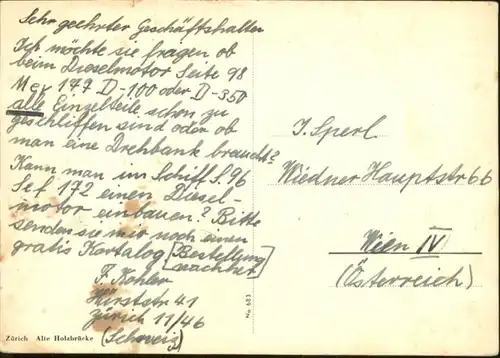 Sehr geehrter Geschäftshalter
Ich möchte sie fragen ob
beim Dieselmotor Seite 98
177 D-100 oder D-350
alle Einzelteile schon zu
geschliffen sind oder ob
man eine Drehbank braucht?
Kann man im Schiff S. 96
172 einen Diesel-
motor einbauen? Bitte
senden sie mir noch einen
gratis Kartalog [Bestellung
F. Kohler
Hürststr 41
Zürich 11/46
(Schweiz)
Zürich Alte Holzbrücke
No 683
J. Sperl
Wiedner Hauptstr 66
Wien IV
(Österreich)